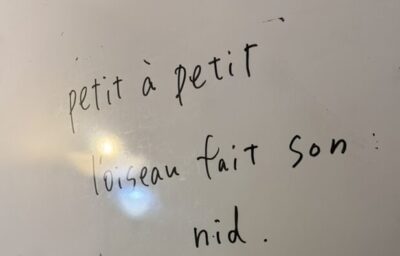 petit à petit
l'oiseau fait son
nid.